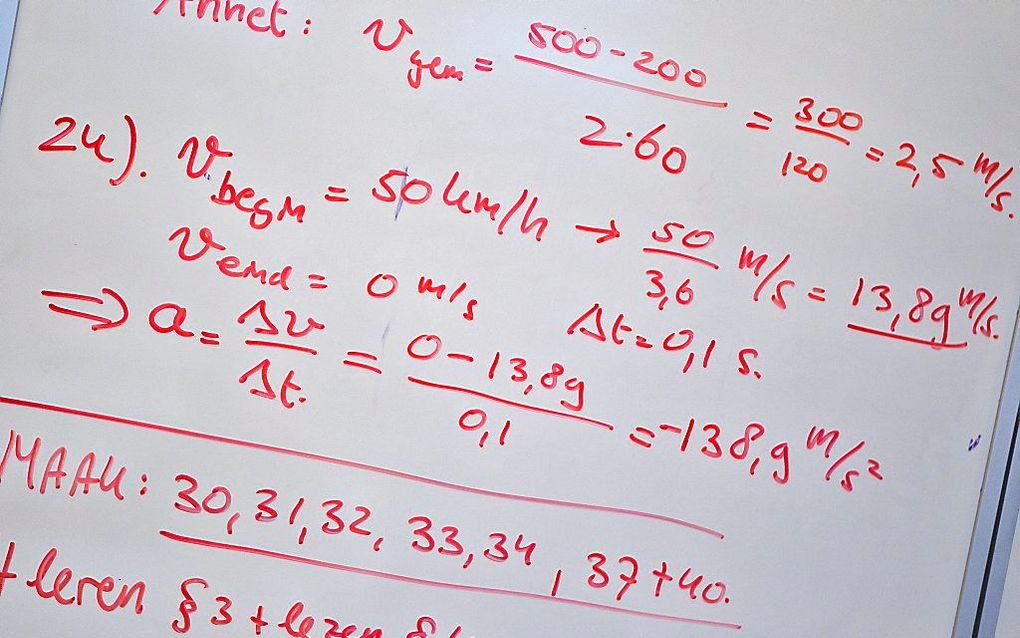 Annet: v gem = 500-200 / 2·60 = 300/120 = 2,5 m/s.
24). v begin = 50 km/h → 50/3,6 m/s = 13,89 m/s.
v eind = 0 m/s Δt=0,1 s.
⇒ a = Δv/Δt. = 0-13,89 / 0,1 = -138,9 m/s²
MAAK: 30, 31, 32, 33, 34, 37+40.
+ leren §3 + lezen